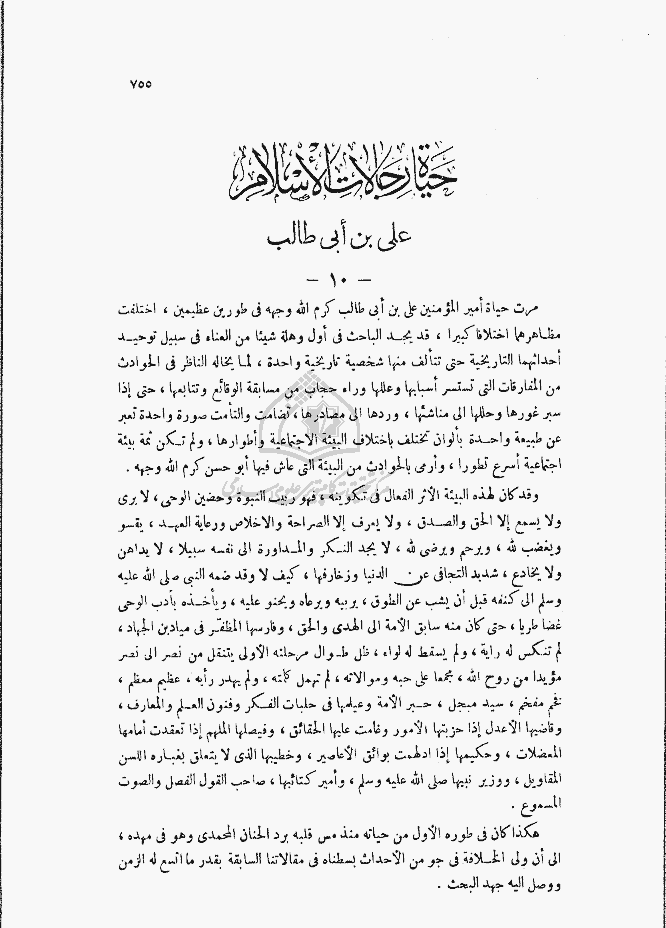 ٧٥٥
حياة رجالات الأسلام
على بن أبى طالب
— ١٠ —
مرت حياة أمير المؤمنين على بن أبى طالب كرم الله وجهه فى طورين عظيمين ، اختلفت
مظاهرهما اختلافا كبيرا ، قد يجد الباحث فى أول وهلة شيئا من العناء فى سبيل توحيد
أحداثهما التاريخية حتى تتألف منها شخصية تاريخية واحدة ، لما يخاله الناظر فى الحوادث
من المفارقات التى تستسر أسبابها وعللها وراء حجاب من مسابقة الوقائع وتتابعها ، حتى إذا
سبر غورها وحللها الى مناشئها ، وردها الى مصادرها ، تضامت والتأمت صورة واحدة تعبر
عن طبيعة واحدة بألوان تختلف باختلاف البيئة الاجتماعية وأطوارها ، ولم تكن ثمة بيئة
اجتماعية أسرع تطورا ، وأرى بالحوادث من البيئة التى عاش فيها أبو حسن كرم الله وجهه .
وقد كان لهذه البيئة الأثر الفعال فى تكوينه ، فهو ربيب النبوة وحضين الوحى ، لا يرى
ولا يسمع إلا الحق والصدق ، ولا يعرف إلا الصراحة والاخلاص ورعاية العهد ، يقسو
ويغضب لله ، ويرحم ويرضى لله ، لا يجد النكر والمداورة الى نفسه سبيلا ، لا يداهن
ولا يخادع ، شديد التجافى عن الدنيا وزخارفها ، كيف لا وقد ضمه النبى صلى الله عليه
وسلم الى كنفه قبل أن يشب عن الطوق ، يربيه ويرعاه ويحنو عليه ، ويأخذه بأدب الوحى
غضا طريا ، حتى كان منه سابق الأمة الى الهدى والحق ، وفارسها المظفّر فى ميادين الجهاد ،
لم تنكس له راية ، ولم يسقط له لواء ، ظل طوال مرحلته الأولى يتنقل من نصر الى نصر
مؤيدا من روح الله ، مجمعا على حبه وموالاته ، لم تهمل كلمته ، ولم يهدر رأيه ، عظيم معظم ،
فخم مفخم ، سيد مبجل ، حبر الأمة وعيلمها فى حلبات الفكر وفنون العلم والمعارف ،
وقاضيها الأعدل إذا حزبتها الأمور وغامت عليها الحقائق ، وفيصلها الملهم إذا تعقدت أمامها
المعضلات ، وحكيمها إذا ادلهمت بوائق الأعاصير ، وخطيبها الذى لا يتعلق بغباره اللسن
المقاويل ، ووزير نبيها صلى الله عليه وسلم ، وأمير كتائبها ، صاحب القول الفصل والصوت
المسموع .
هكذا كان فى طوره الأول من حياته منذ مس قلبه برد الحنان المحمدى وهو فى مهده ،
الى أن ولى الخلافة فى جو من الأحداث بسطناه فى مقالاتنا السابقة بقدر ما اتسع له الزمن
ووصل اليه جهد البحث .